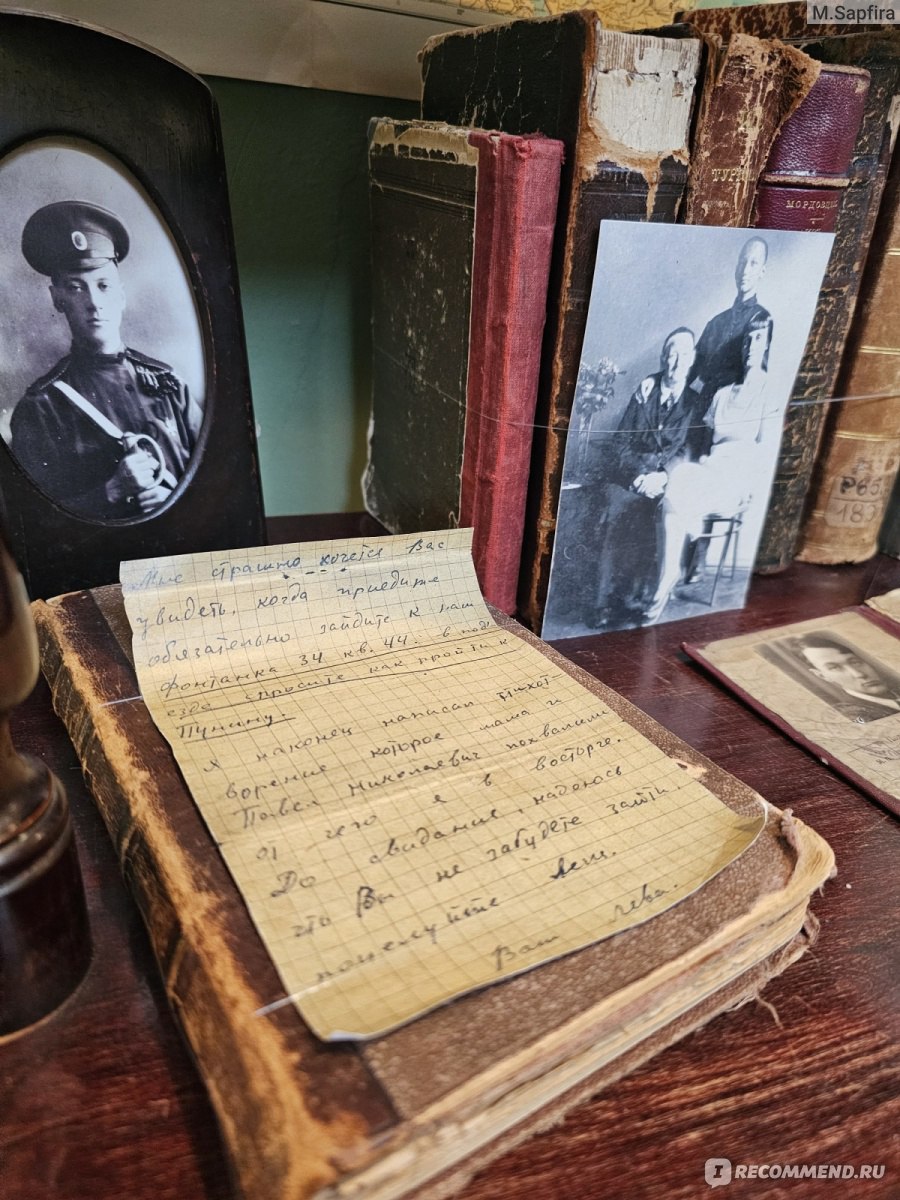 M.Sapfira
ТУРГ
МОРДОВЦ
Р65
189
Мне страшно хочется Вас
увидеть, когда приедите
обязательно зайдите к нам
Фонтанка 34 кв. 44. в под'
езде спросите как пройти к
Пунину.
Я наконец написал стихот-
ворение которое мама и
Павел Николаевич похвалили
от чего я в восторге.
До свидание, надеюсь
что Вы не забудете зайти.
поцелуйте
Ваш Лева.
IRECOMMEND.RU